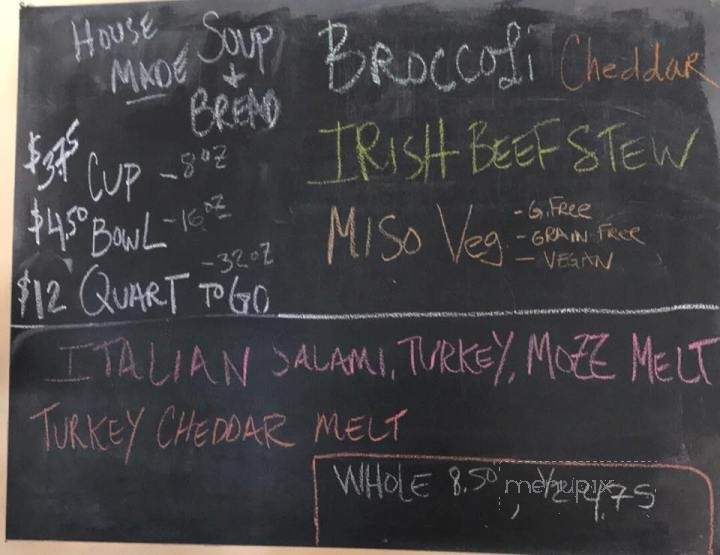 HOUSE MADE SOUP + BREAD
$3.75 CUP - 8oz
$4.50 BOWL - 16oz
$12 QUART TO GO - 32oz
BROCCOLi Cheddar
IRISH BEEF STEW
MISO Veg
- G.FREE
- GRAIN-FREE
- VEGAN
ITALIAN SALAMI, TURKEY, MOZZ MELT
TURKEY CHEDDAR MELT
WHOLE 8.50, 1/2 4.75
menupix